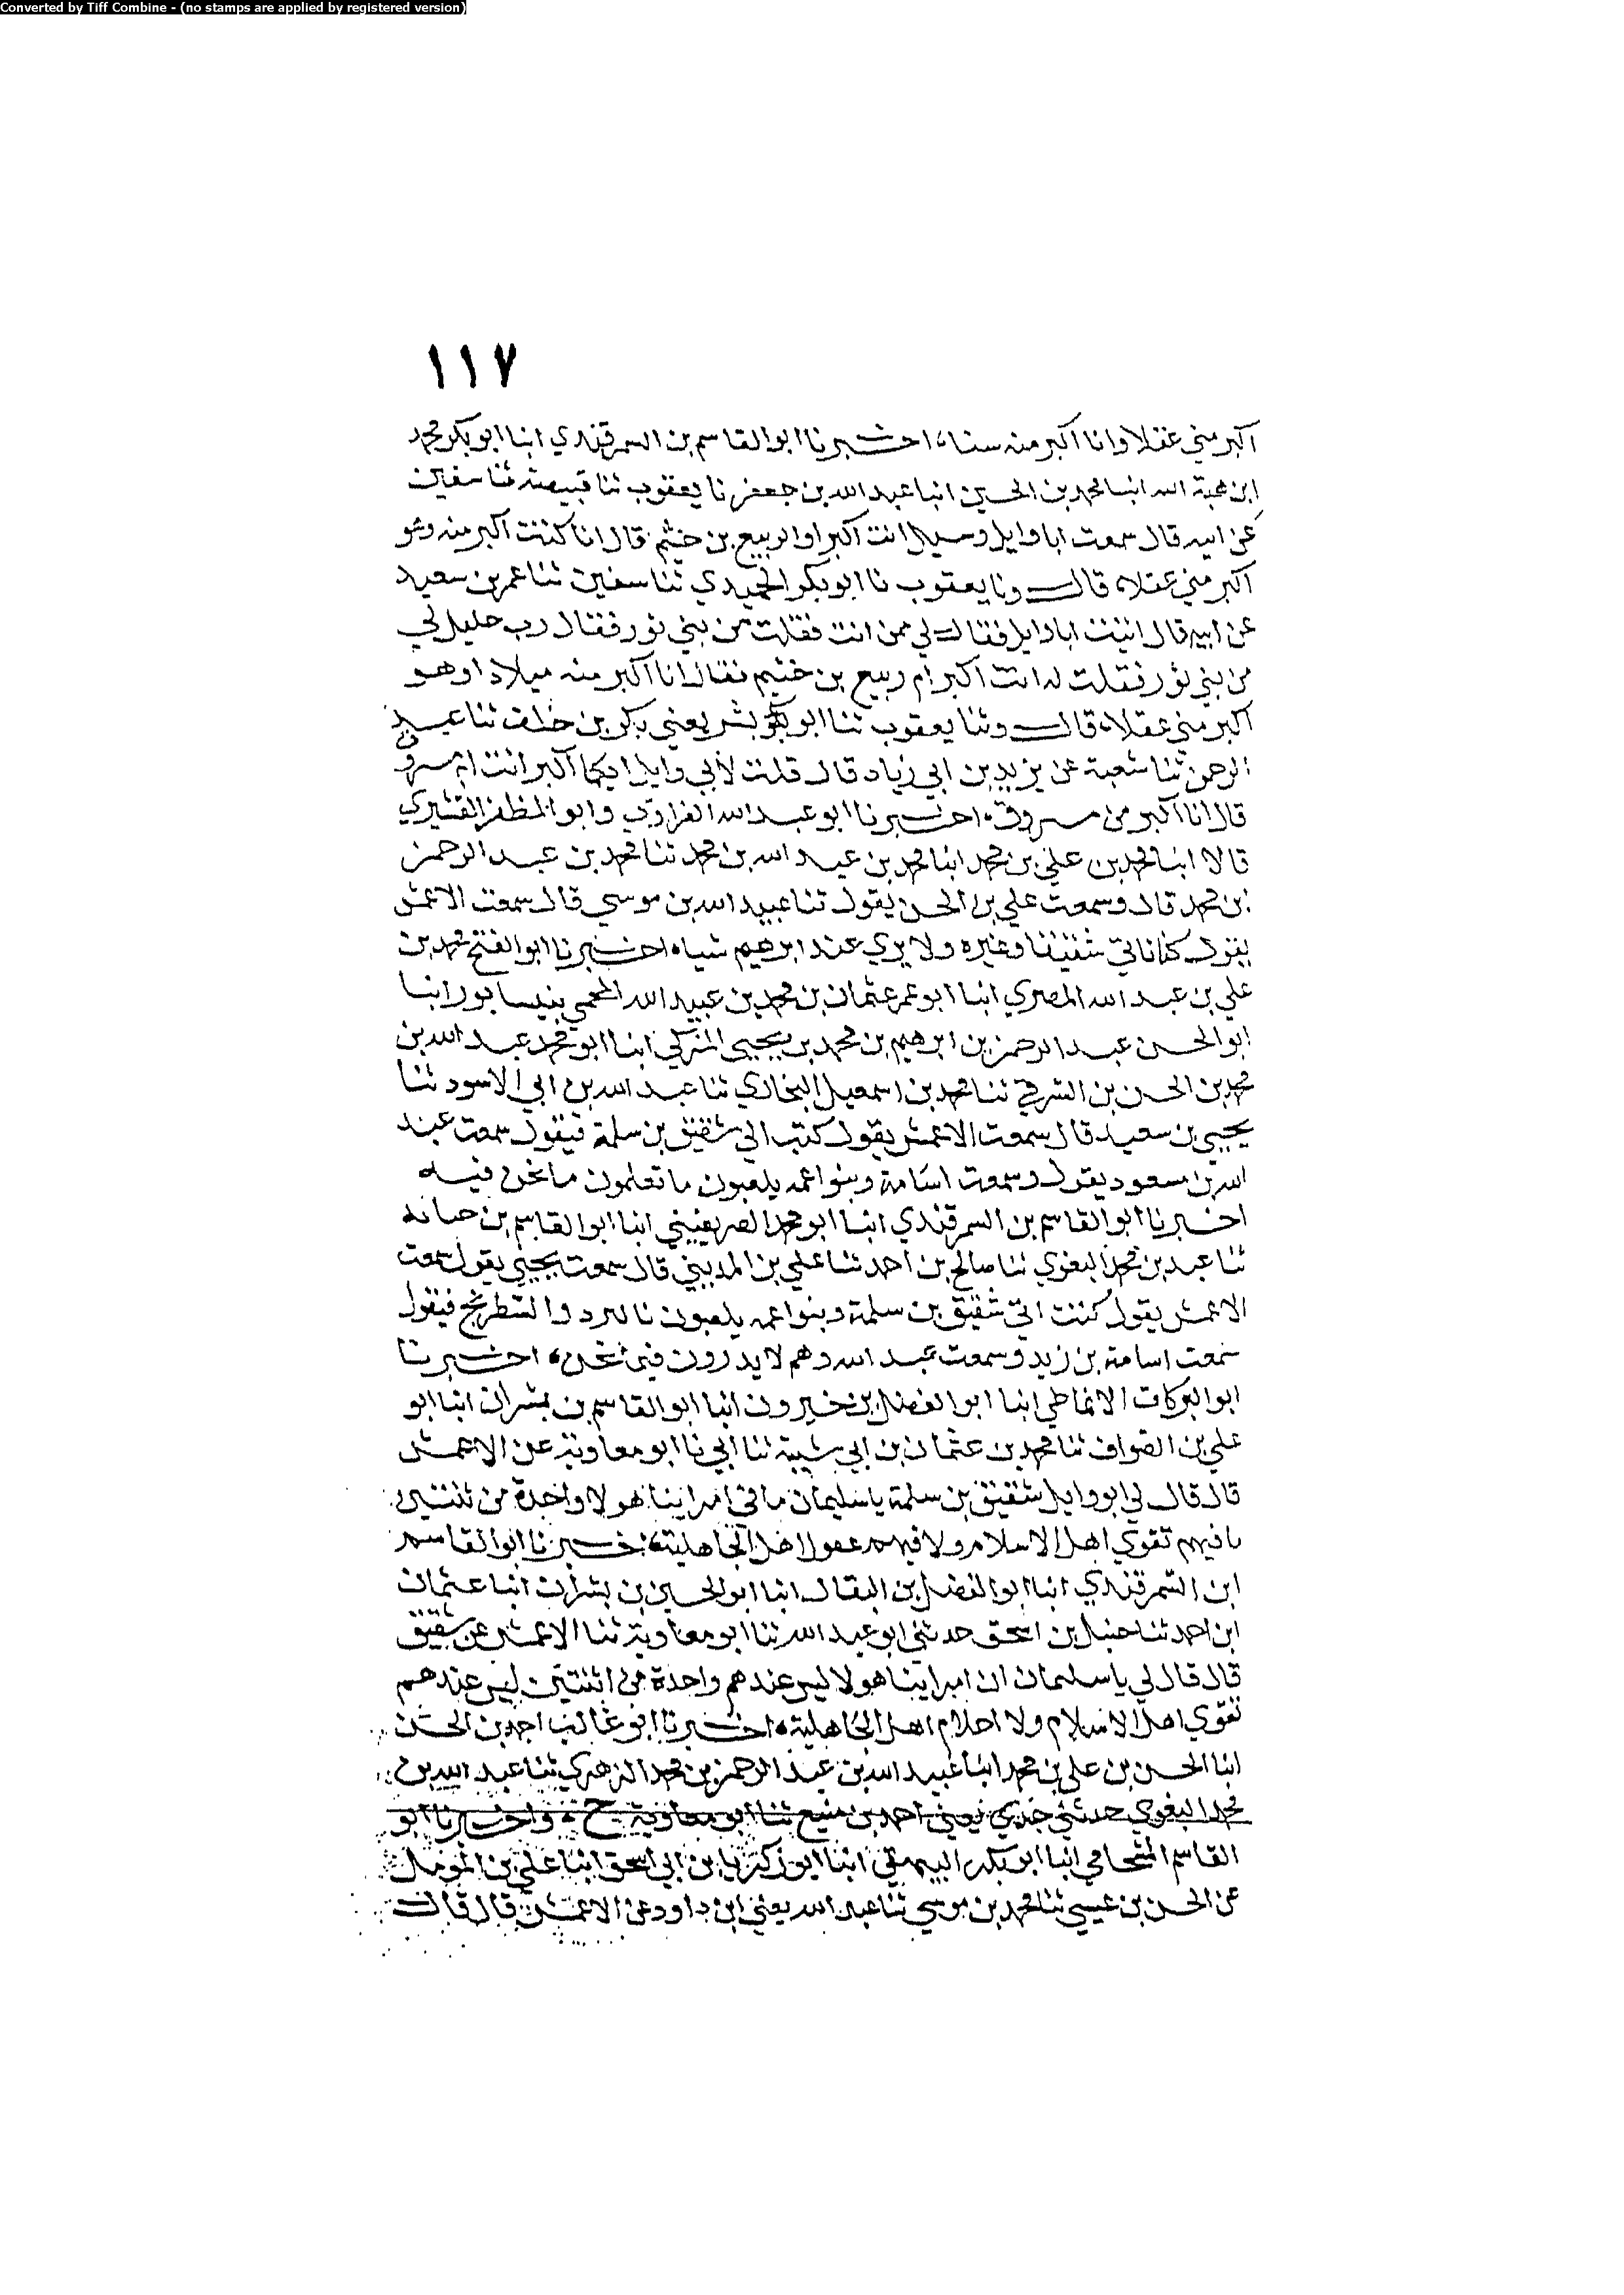 Converted by Tiff Combine - (no stamps are applied by registered version)
١١٧
اكبر مني عقلا وانا اكبر منه سنا، اخبرنا ابو القاسم بن السمرقندي انبا ابو بكر محمد
ابن هبة الله انبا محمد بن الحسين انبا عبد الله بن جعفر نا يعقوب ثنا قبيصة ثنا سفين
عن ابيه قال سمعت ابا وايل وسيل انت اكبر او الربيع بن خثيم قال انا كنت اكبر منه وهو
اكبر مني عقلا، قال ونا يعقوب نا ابو بكر الحميدي ثنا سفين ثنا عمر بن سعيد
عن ابيه قال اتيت ابا وايل فقال لي ممن انت فقلت من بني ثور فقال رب خليل لي
من بني ثور فقلت له انت اكبر ام ربيع بن خثيم فقال انا اكبر منه ميلادا وهو
اكبر مني عقلا، قال وثنا يعقوب ثنا ابو بشر يعني بكر بن خلف ثنا عبد
الرحمن ثنا شعبة عن يزيد بن ابي زياد قال قلت لابي وايل ايكما اكبر انت ام مسروق
قال انا اكبر من مسروق، اخبرنا ابو عبد الله الفراوي وابو المظفر القشيري
قالا انبا محمد بن علي بن محمد انبا محمد بن عبد الله بن محمد ثنا محمد بن عبد الرحمن
بن محمد قال وسمعت علي بن الحسن يقول ثنا عبيد الله بن موسي قال سمعت الاعمش
يقول كنا ناتي شقيقا وغيره ولا يري عند ابرهيم شيا، اخبرنا ابو الفتح محمد بن
علي بن عبد الله المصري انبا ابو عمر عثمان بن محمد بن عبيد الله المحمي بنيسابور انبا
ابو الحسن عبد الرحمن بن ابرهيم بن محمد بن يحيي المزكي انبا ابو محمد عبد الله بن
محمد بن الحسن بن الشرقي ثنا محمد بن اسمعيل البخاري ثنا عبد الله بن ابي الاسود ثنا
يحيي بن سعيد قال سمعت الاعمش يقول كنت اتي شقيق بن سلمة فيقول سمعت عبد
الله بن مسعود يقول وسمعت اسامة وبنوا عمه يلعبون ما تعلمون ما نحن فيه
اخبرنا ابو القاسم بن السمرقندي انبا ابو محمد الصريفيني انبا ابو القاسم بن حبابة
ثنا عبد بن محمد البغوي ثنا صالح بن احمد ثنا علي بن المديني قال سمعت يحيي يقول سمعت
الاعمش يقول كنت اتي شقيق بن سلمة وبنوا عمه يلعبون بالنرد والشطرنج فيقول
سمعت اسامة بن زيد وسمعت عبد الله وهم لا يدرون فيما نحن، اخبرنا
ابو البركات الانماطي انبا ابو الفضل بن خيرون انبا ابو القاسم بن بشران انبا ابو
علي بن الصواف ثنا محمد بن عثمان بن ابي شيبة ثنا ابي نا ابو معاوية عن الاعمش
قال قال لي ابو وايل شقيق بن سلمة يا سليمان ما في امراينا هولا واحدة من ثنتين
ما فيهم تقوي اهل الاسلام ولا فيهم عقول اهل الجاهلية، اخبرنا ابو القاسم
ابن السمرقندي انبا ابو الفضل بن البقال انبا ابو الحسين بن بشران انبا عثمان
ابن احمد ثنا حنبل بن اسحق حدثني ابو عبد الله ثنا ابو معاوية ثنا الاعمش عن شقيق
قال قال لي يا سليمان ان امراينا هولا ليس عندهم واحدة من اثنتين ليس عندهم
تقوي اهل الاسلام ولا احلام اهل الجاهلية، اخبرنا ابو غالب احمد بن الحسن
انبا الحسن بن علي بن محمد انبا عبيد الله بن عبد الرحمن بن محمد الزهري ثنا عبد الله بن
محمد البغوي حدثني جدي يعني احمد بن منيع ثنا ابو معاوية ح، واخبرنا ابو
القاسم الشحامي انبا ابو بكر البيهقي انبا ابو زكريا بن ابي اسحق انبا علي بن المومل
عن الحسن بن عيسي ثنا محمد بن موسي ثنا عبد الله يعني ابن داود عن الاعمش قال قال